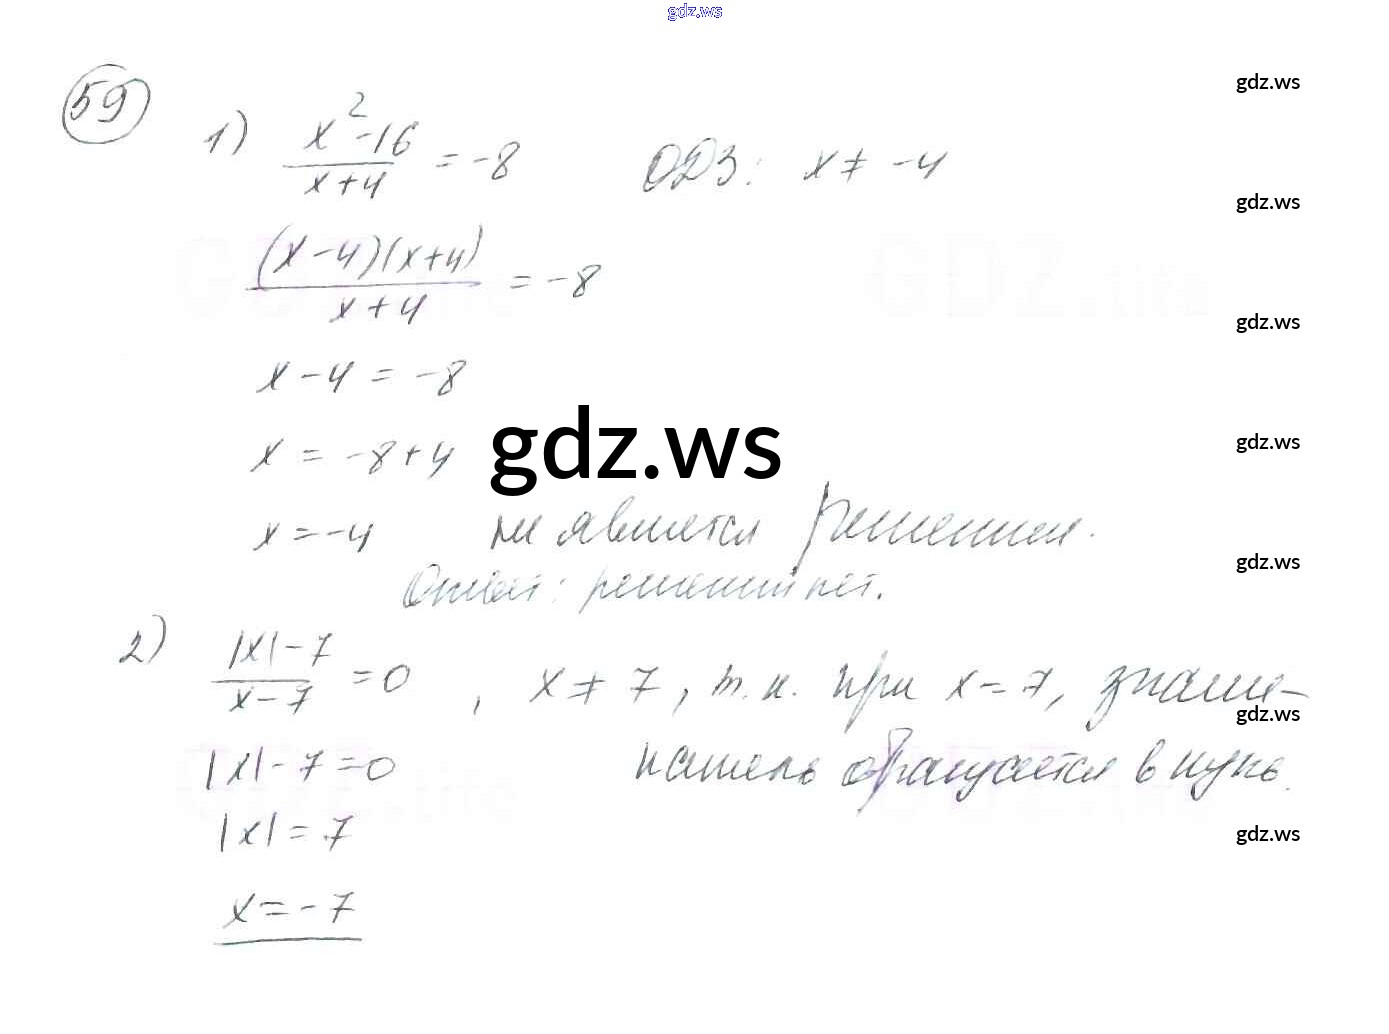 gdz.ws
59
gdz.ws
1) x²-16 / x+4 = -8 ОДЗ: x ≠ -4
gdz.ws
(x-4)(x+4) / x+4 = -8
gdz.ws
x-4 = -8
x = -8+4
gdz.ws
gdz.ws
x = -4 не является решением.
gdz.ws
Ответ: решений нет.
2) |x|-7 / x-7 = 0, x ≠ 7, т.к. при x=7, знаме-
gdz.ws
|x|-7=0 натель обращается в нуль.
|x|=7
gdz.ws
x=-7